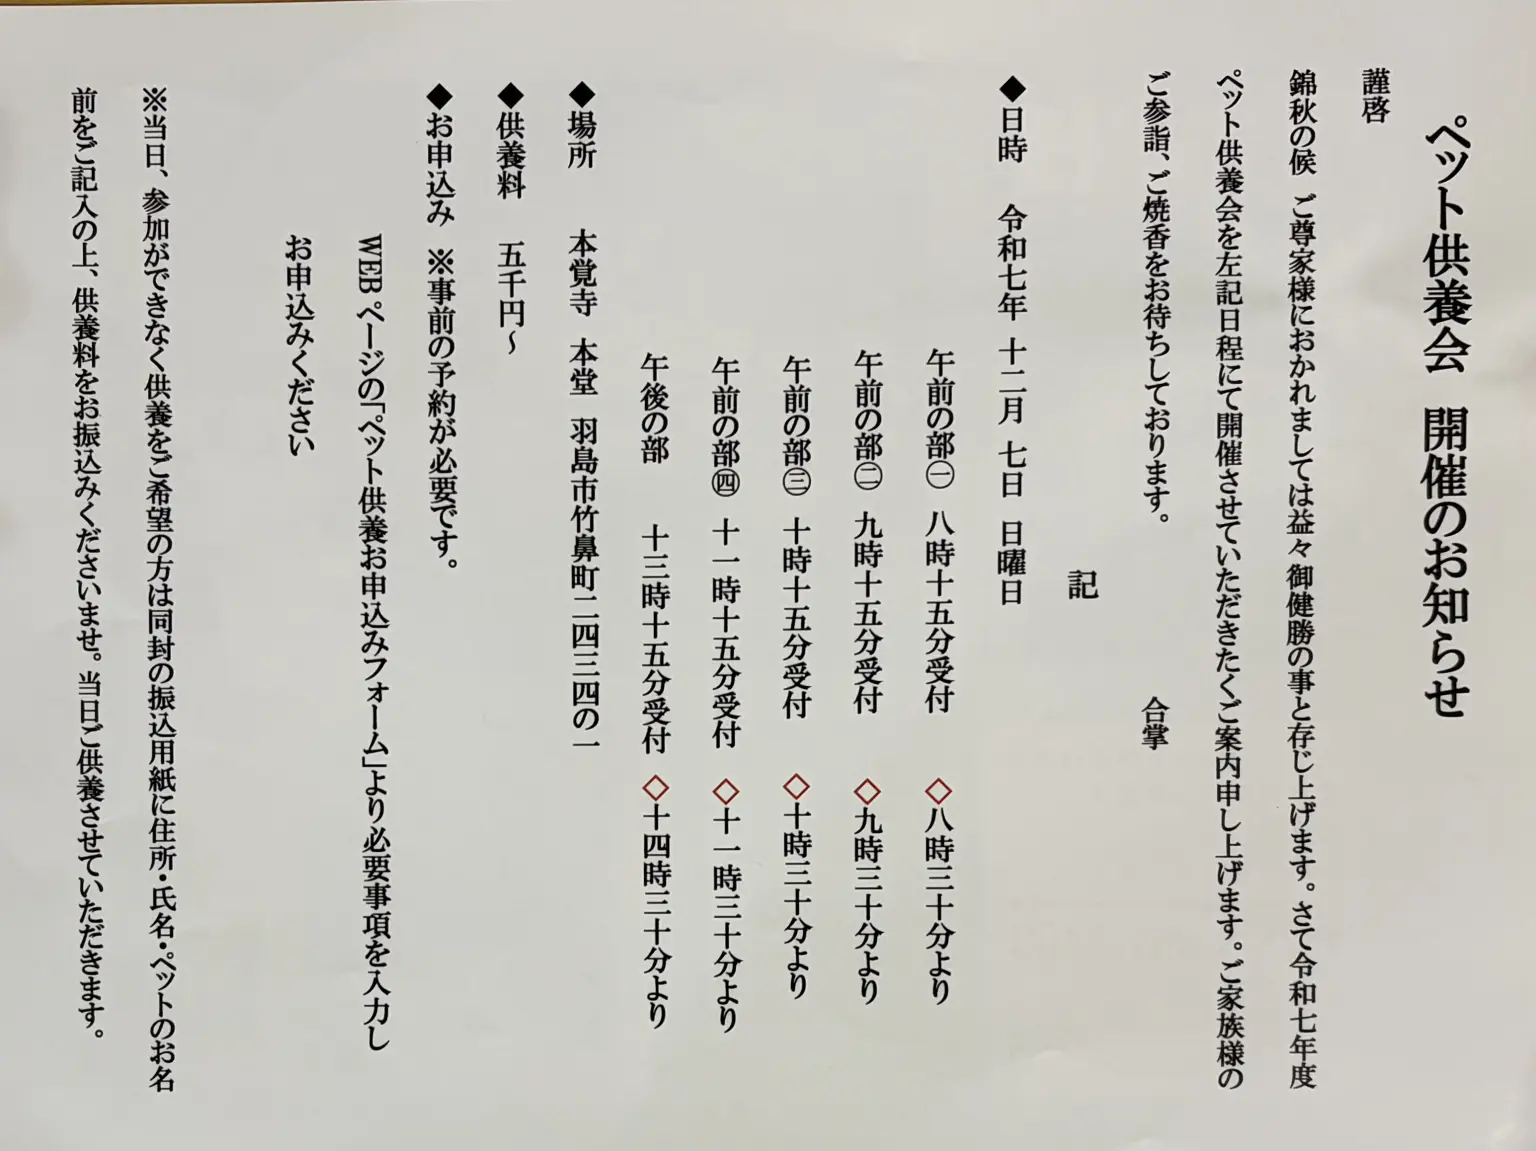 ペット供養会　開催のお知らせ
謹啓
錦秋の候　ご尊家様におかれましては益々御健勝の事と存じ上げます。さて令和七年度
ペット供養会を左記日程にて開催させていただきたくご案内申し上げます。ご家族様の
ご参詣、ご焼香をお待ちしております。　合掌
記
◆日時　令和七年　十二月　七日　日曜日
午前の部㊀　八時十五分受付　◇八時三十分より
午前の部㊁　九時十五分受付　◇九時三十分より
午前の部㊂　十時十五分受付　◇十時三十分より
午前の部㊃　十一時十五分受付　◇十一時三十分より
午後の部　十三時十五分受付　◇十四時三十分より
◆場所　本覚寺　本堂　羽島市竹鼻町二四三四の一
◆供養料　五千円～
◆お申込み　※事前の予約が必要です。
WEBページの「ペット供養お申込みフォーム」より必要事項を入力し
お申込みください
※当日、参加ができなく供養をご希望の方は同封の振込用紙に住所・氏名・ペットのお名
前をご記入の上、供養料をお振込みくださいませ。当日ご供養させていただきます。